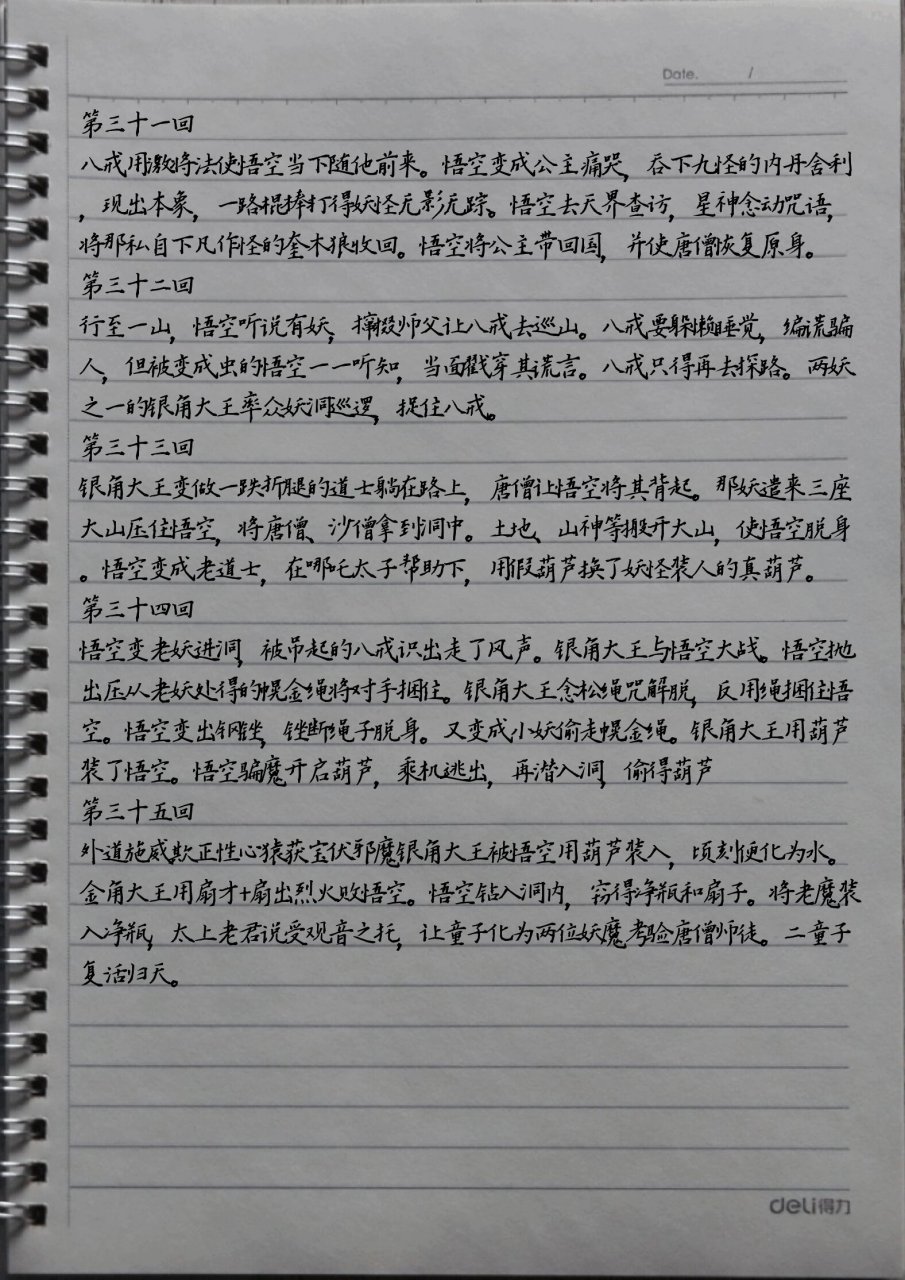 Date. /
第三十一回
八戒用激将法使悟空当下随他前来。悟空变成公主痛哭，吞下九怪的内丹舍利
，现出本象，一路棍捧打得妖怪无影无踪。悟空去天界查访，星神念动咒语，
将那私自下凡作怪的奎木狼收回。悟空将公主带回国，并使唐僧恢复原身。
第三十二回
行至一山，悟空听说有妖，撺掇师父让八戒去巡山。八戒要躲懒睡觉，编谎骗
人，但被变成虫的悟空一一听知，当面戳穿其谎言。八戒只得再去探路。两妖
之一的银角大王率众妖洞巡逻，捉住八戒。
第三十三回
银角大王变做一跌折腿的道士躺在路上，唐僧让悟空将其背起。那妖遣来三座
大山压住悟空，将唐僧、沙僧拿到洞中。土地、山神等搬开大山，使悟空脱身
。悟空变成老道士，在哪吒太子帮助下，用假葫芦换了妖怪装人的真葫芦。
第三十四回
悟空变老妖进洞，被吊起的八戒识出走了风声。银角大王与悟空大战。悟空抛
出压从老妖处得的幌金绳将对手捆住。银角大王念松绳咒解脱，反用绳捆住悟
空。悟空变出钢锉，锉断绳子脱身。又变成小妖偷走幌金绳。银角大王用葫芦
装了悟空。悟空骗魔开启葫芦，乘机逃出，再潜入洞，偷得葫芦
第三十五回
外道施威欺正性心猿获宝伏邪魔银角大王被悟空用葫芦装入，顷刻便化为水。
金角大王用扇才+扇出烈火败悟空。悟空钻入洞内，窃得净瓶和扇子。将老魔装
入净瓶，太上老君说受观音之托，让童子化为两位妖魔考验唐僧师徒。二童子
复活归天。
deli得力